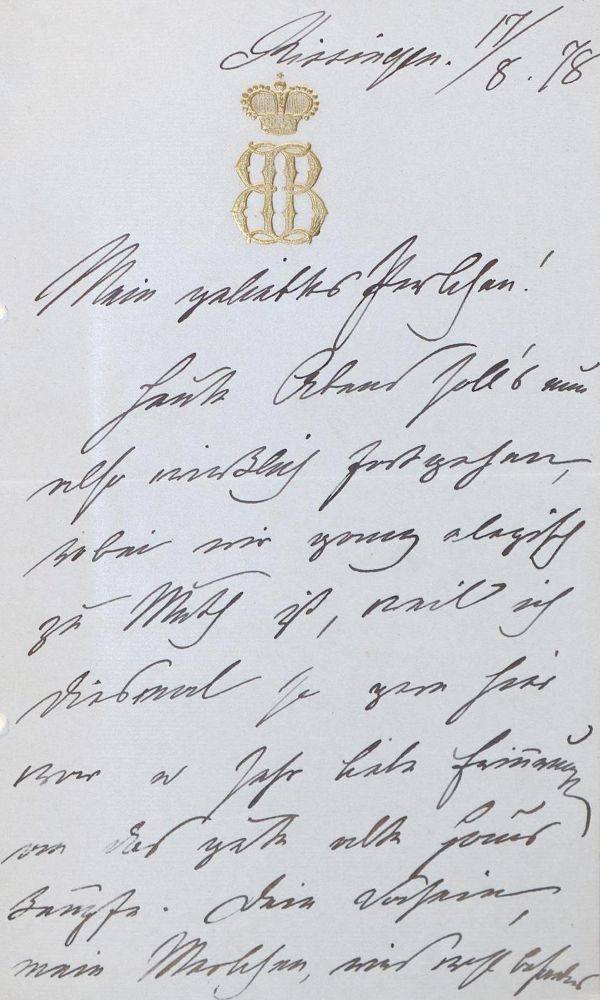 Kissingen. 17/8. 78
BB
Mein geliebtes Perlchen!
Heute Abend soll's nun
also wirklich fortgehen,
wobei mir ganz elegisch
zu Muth ist, weil ich
diesmal so gern hier
war u sehr liebe Erinnerungen
an das gute alte Haus
knüpfe. Dein Dasein,
mein Perlchen, wird recht besonders